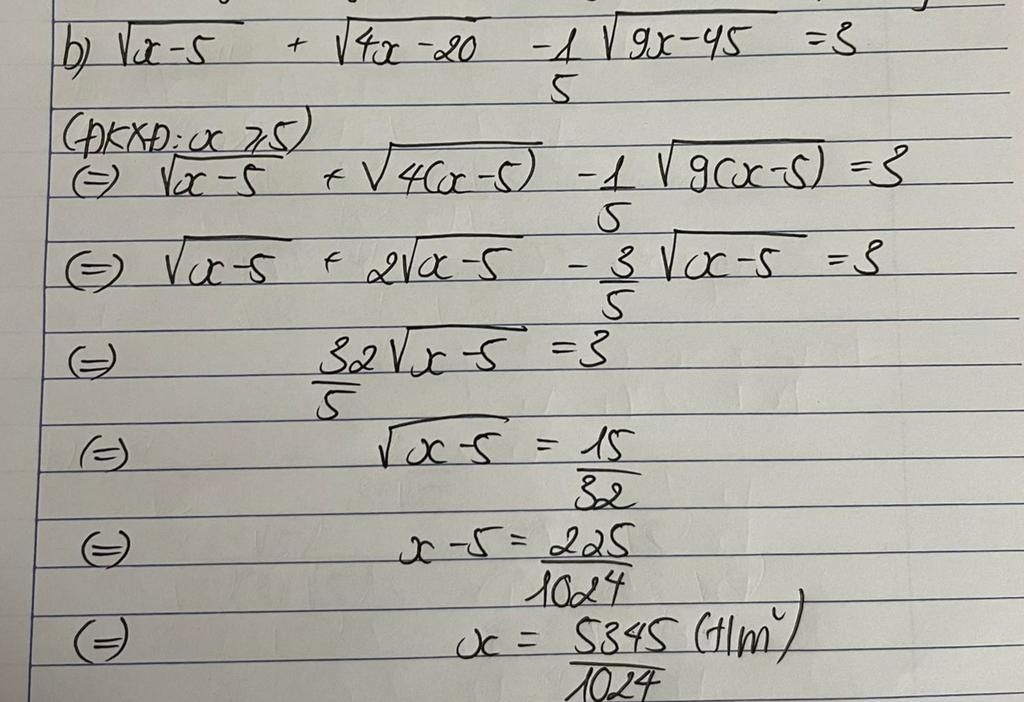 b) √(x-5) + √(4x-20) - 1/5 √(9x-45) = 3
(ĐKXĐ: x ≥ 5)
(=) √(x-5) + √(4(x-5)) - 1/5 √(9(x-5)) = 3
(=) √(x-5) + 2√(x-5) - 3/5 √(x-5) = 3
(=) 32/5 √(x-5) = 3
(=) √(x-5) = 15/32
(=) x-5 = 225/1024
(=) x = 5345/1024 (t/m)